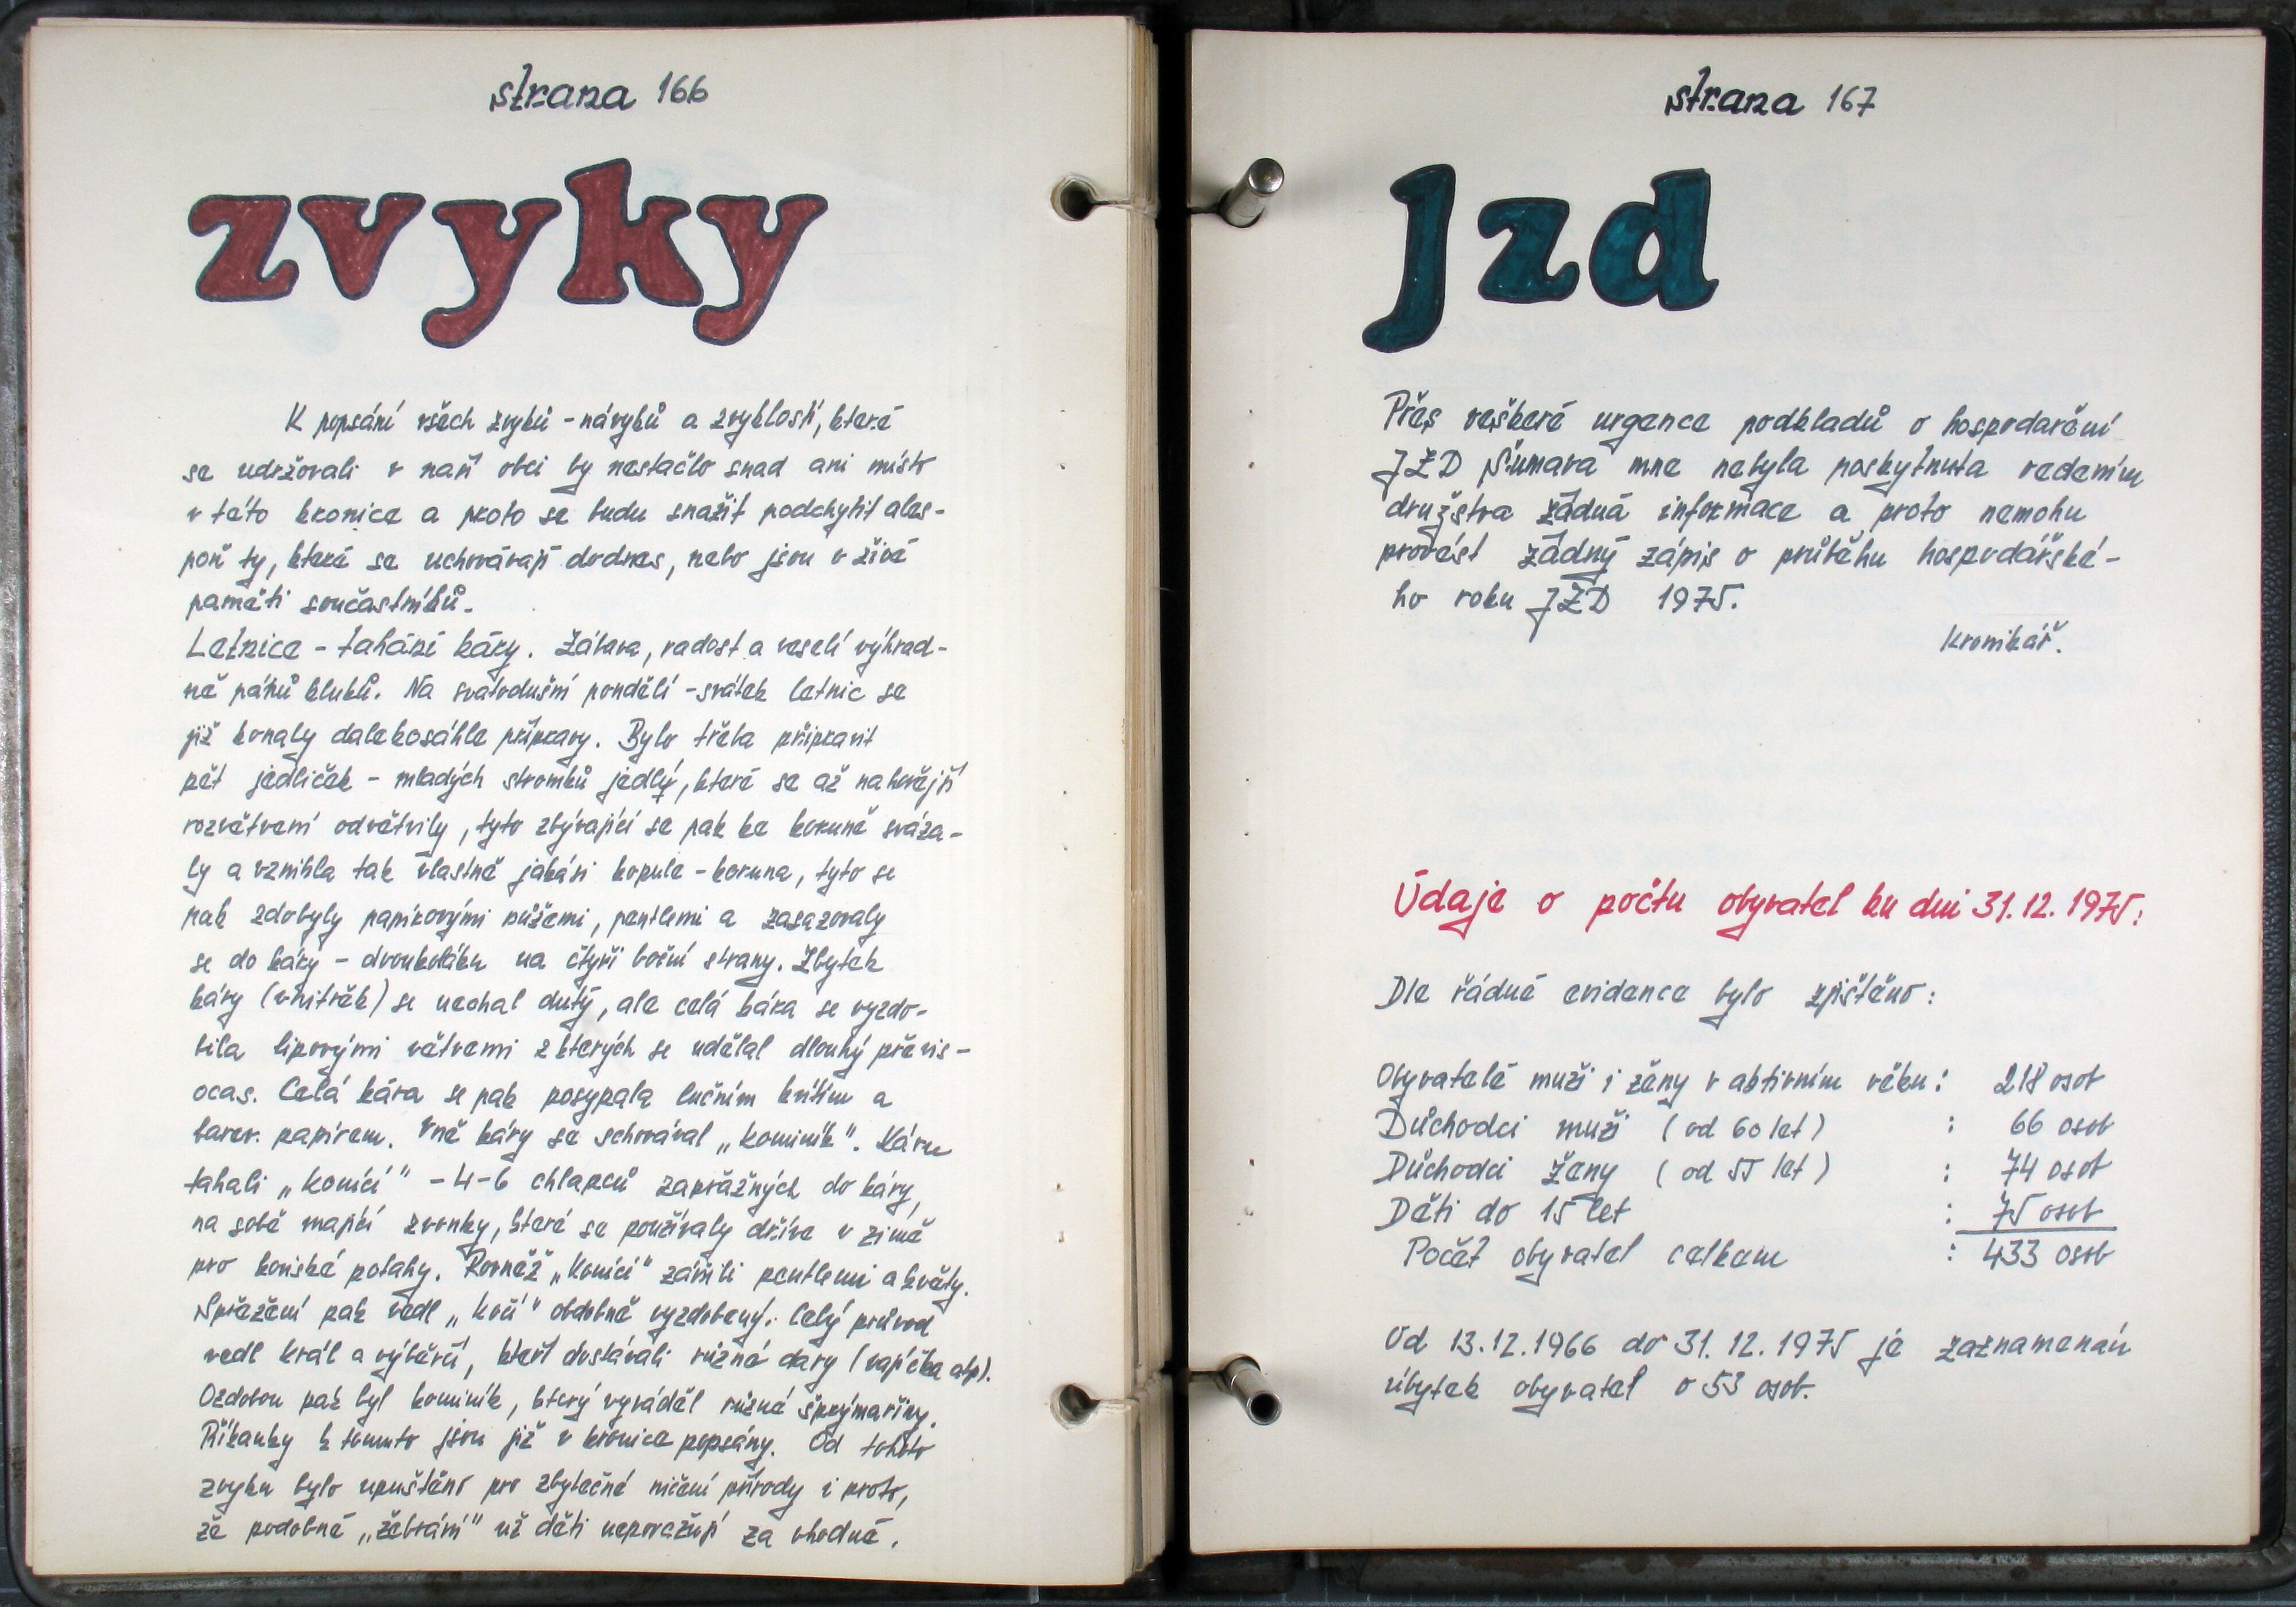 strana 166
zvyky
K popsání všech zvyků - návyků a zvyklostí, které
se udržovali v naší obci by nestačlo snad ani místo
v této kronice a proto se budu snažit podchytit ales-
poň ty, které se uchovávají dodnes, nebo jsou v živé
paměti součastníků.
Letnice - tahání káry. Zábava, radost a veselí výhrad-
ně páhů kluků. Na svatodušní pondělí - svátek letnic se
již konaly dalekosáhle přípravy. Bylo třeba připravit
pět jedliček - mladých stromků jedlý, které se až na hořejší
rozvětvení odvětvily, tyto zbývající se pak ke koruně sváza-
ly a vznikla tak vlastně jakási kopule - koruna, tyto se
pak zdobyly papírovými růžemi, pentlemi a zasazovaly
se do káry - dvoukoláku na čtyři boční strany. Zbytek
káry (vnitřek) se nechal dutý, ale celá kára se vyzdo-
bila lipovými větvemi z kterých se udělal dlouhý převis -
ocas. Celá kára se pak posypala lučním kvítím a
barev. papírem. Vně káry se schovával „kominík". Káru
tahali „koníci" - 4-6 chlapců zapražných do káry,
na sobě mající zvonky, které se používaly dříve v zimě
pro koňské potahy. Rovněž „koníci" zářili pentlemi a květy.
Spřežení pak vedl „kočí" obdobně vyzdobený. Celý průvod
vedl král a výběrčí, kteří dostávali různé dary (vajíčka atp).
Ozdobou pak byl kominík, který vyváděl různé šprýmařiny.
Říkanky k tomuto jsou již v kronice popsány. Od tohoto
zvyku bylo upuštěno pro zbytečné ničení přírody i proto,
že podobné „žebrání" už děti nepovažují za vhodné.
strana 167
jzd
Přes veškeré urgence podkladů o hospodaření
JZD Šumava mne nebyla poskytnuta vedením
družstva žádná informace a proto nemohu
provést žádný zápis o průběhu hospodářské-
ho roku JZD 1975.
Kronikář.
Údaje o počtu obyvatel ku dni 31.12.1975:
Dle řádné evidence bylo zjištěno:
Obyvatelé muži i ženy v aktivním věku: 218 osob
Důchodci muži (od 60 let) : 66 osob
Důchodci ženy (od 55 let) : 74 osob
Děti do 15 let : 75 osob
Počet obyvatel celkem : 433 osob
Od 13.12.1966 do 31.12.1975 je zaznamenán
úbytek obyvatel o 53 osob.